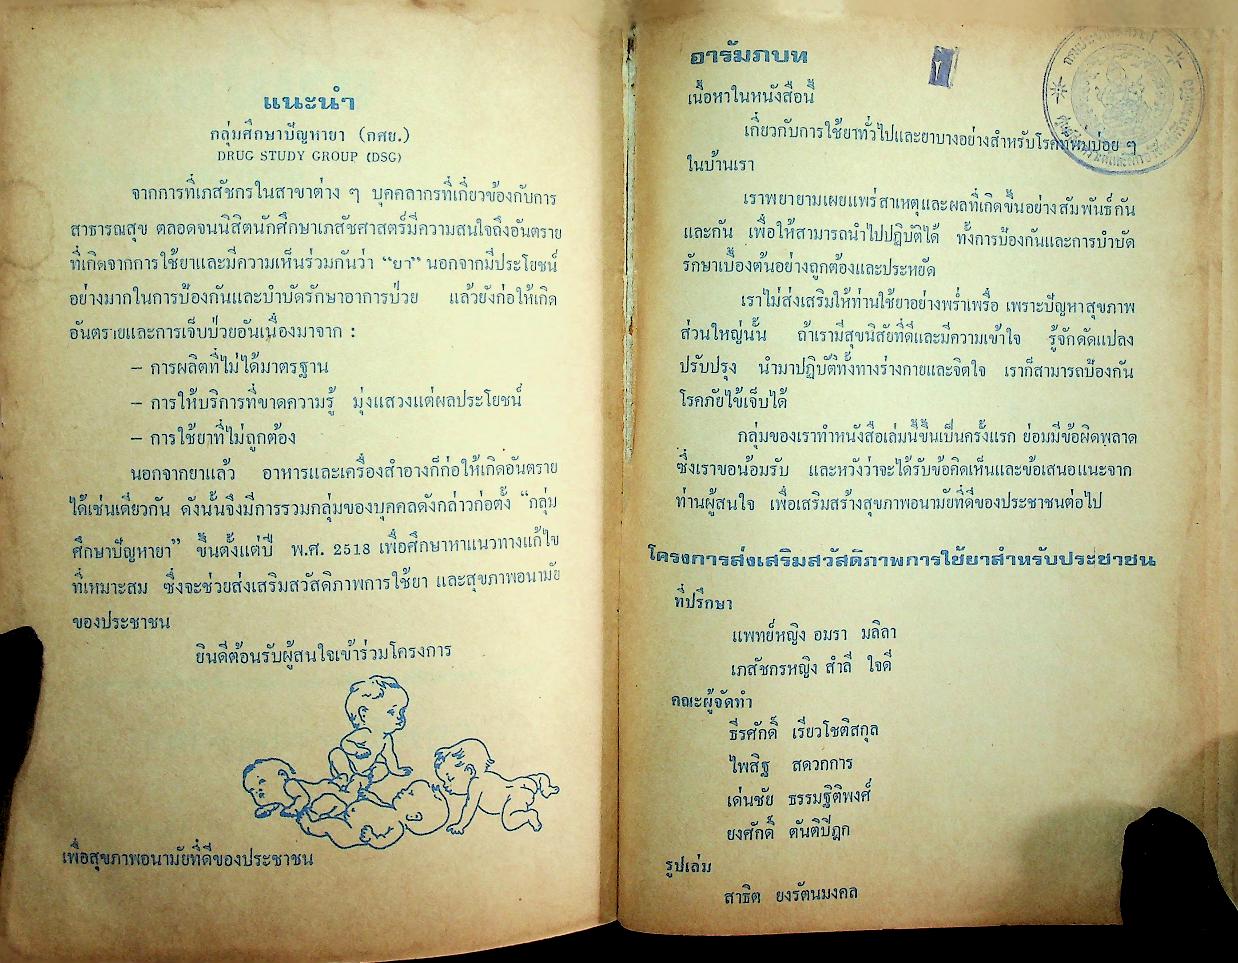 แนะนำ
กลุ่มศึกษาปัญหายา (กศย.)
DRUG STUDY GROUP (DSG)
จากการที่เภสัชกรในสาขาต่าง ๆ บุคคลากรที่เกี่ยวข้องกับการ
สาธารณสุข ตลอดจนนิสิตนักศึกษาเภสัชศาสตร์มีความสนใจถึงอันตราย
ที่เกิดจากการใช้ยาและมีความเห็นร่วมกันว่า “ยา” นอกจากมีประโยชน์
อย่างมากในการป้องกันและบำบัดรักษาอาการป่วย แล้วยังก่อให้เกิด
อันตรายและการเจ็บป่วยอันเนื่องมาจาก :
– การผลิตที่ไม่ได้มาตรฐาน
– การให้บริการที่ขาดความรู้ มุ่งแสวงแต่ผลประโยชน์
– การใช้ยาที่ไม่ถูกต้อง
นอกจากยาแล้ว อาหารและเครื่องสำอางก็ก่อให้เกิดอันตราย
ได้เช่นเดียวกัน ดังนั้นจึงมีการรวมกลุ่มของบุคคลดังกล่าวก่อตั้ง “กลุ่ม
ศึกษาปัญหายา” ขึ้นตั้งแต่ปี พ.ศ. 2518 เพื่อศึกษาหาแนวทางแก้ไข
ที่เหมาะสม ซึ่งจะช่วยส่งเสริมสวัสดิภาพการใช้ยา และสุขภาพอนามัย
ของประชาชน
ยินดีต้อนรับผู้สนใจเข้าร่วมโครงการ
เพื่อสุขภาพอนามัยที่ดีของประชาชน
อารัมภบท
เนื้อหาในหนังสือนี้
เกี่ยวกับการใช้ยาทั่วไปและยาบางอย่างสำหรับโรคที่พบบ่อย ๆ
ในบ้านเรา
เราพยายามเผยแพร่สาเหตุและผลที่เกิดขึ้นอย่างสัมพันธ์กัน
และกัน เพื่อให้สามารถนำไปปฏิบัติได้ ทั้งการป้องกันและการบำบัด
รักษาเบื้องต้นอย่างถูกต้องและประหยัด
เราไม่ส่งเสริมให้ท่านใช้ยาอย่างพร่ำเพรื่อ เพราะปัญหาสุขภาพ
ส่วนใหญ่นั้น ถ้าเรามีสุขนิสัยที่ดีและมีความเข้าใจ รู้จักดัดแปลง
ปรับปรุง นำมาปฏิบัติทั้งทางร่างกายและจิตใจ เราก็สามารถป้องกัน
โรคภัยไข้เจ็บได้
กลุ่มของเราทำหนังสือเล่มนี้ขึ้นเป็นครั้งแรก ย่อมมีข้อผิดพลาด
ซึ่งเราขอน้อมรับ และหวังว่าจะได้รับข้อคิดเห็นและข้อเสนอแนะจาก
ท่านผู้สนใจ เพื่อเสริมสร้างสุขภาพอนามัยที่ดีของประชาชนต่อไป
โครงการส่งเสริมสวัสดิภาพการใช้ยาสำหรับประชาชน
ที่ปรึกษา
แพทย์หญิง อมรา มลิลา
เภสัชกรหญิง สำลี ใจดี
คณะผู้จัดทำ
ธีรศักดิ์ เรียวโชติสกุล
ไพสิฐ สดวกการ
เด่นชัย ธรรมฐิติพงศ์
ยงศักดิ์ ตันติปิฎก
รูปเล่ม
สาธิต ยงรัตนมงคล